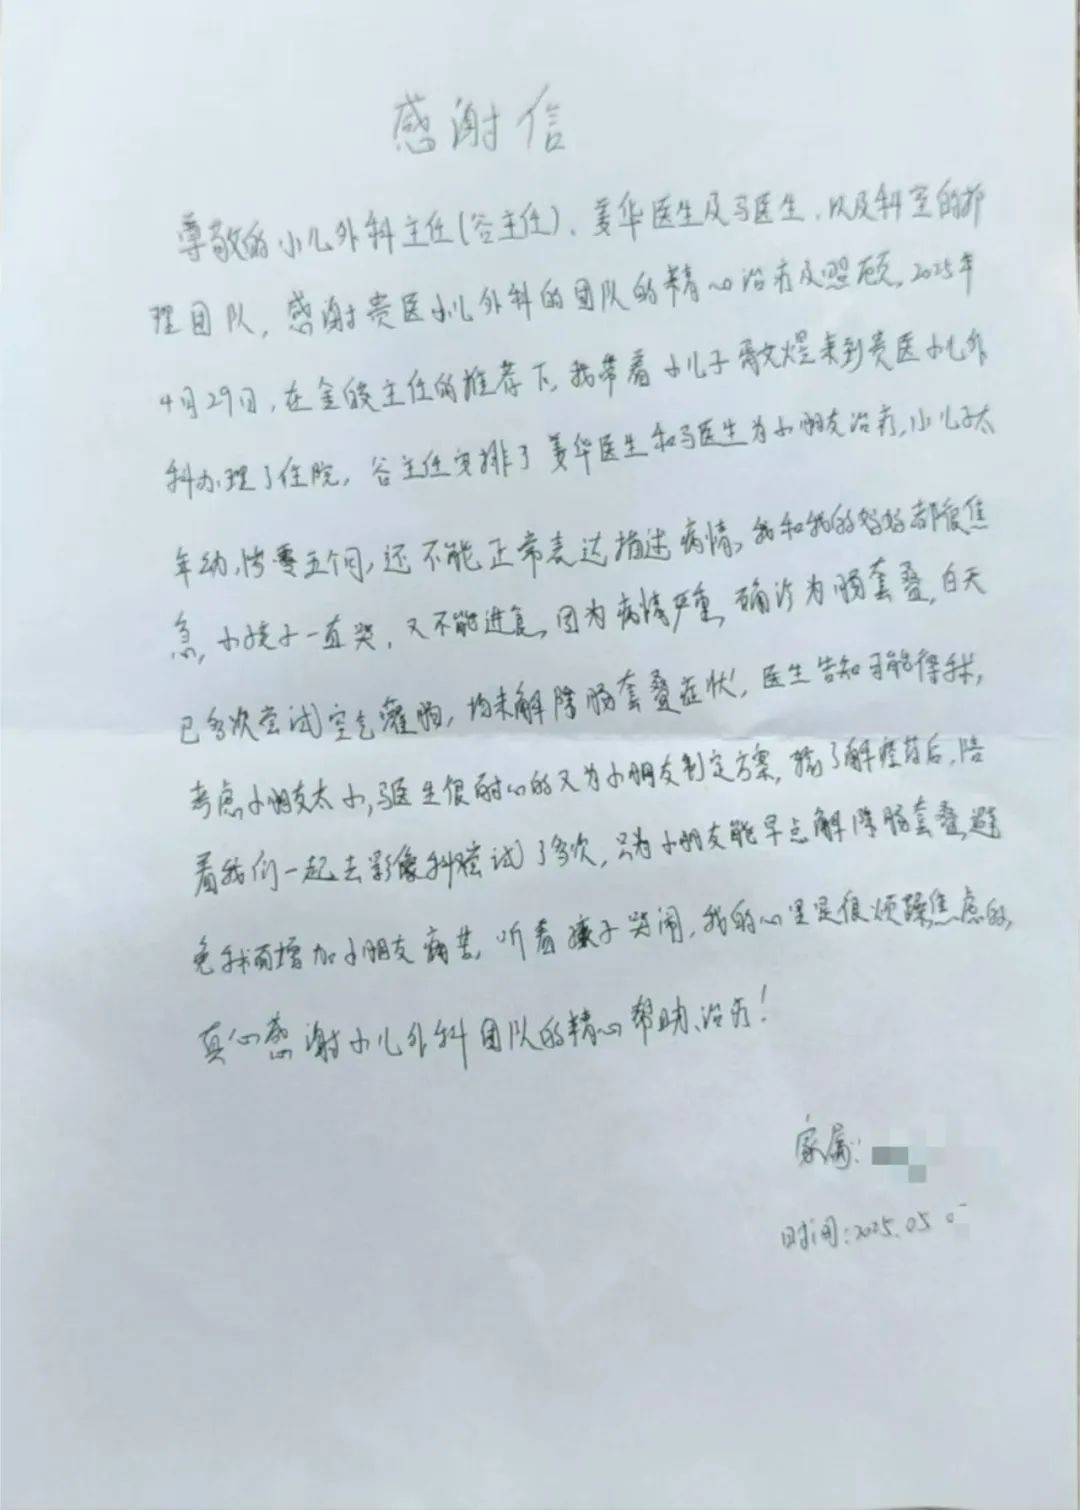 感谢信
尊敬的小儿外科主任(谷主任)、姜华医生及马医生、以及科室的护
理团队,感谢贵医小儿外科的团队的精心治疗及照顾,2025年
4月29日,在金皎主任的推荐下,我带着小儿子文煜来到贵医小儿外
科办理了住院,谷主任安排了姜华医生和马医生为小朋友治疗,小儿子太
年幼,零五个月,还不能正常表达描述病情,我和我的妈妈都很焦
急,小孩子一直哭,又不能进食,因为病情严重,确诊为肠套叠,白天
已多次尝试空气灌肠,均未解除肠套叠症状,医生告知可能得手术,
考虑小朋友太小,马医生很耐心的又为小朋友制定方案,输了解痉药后,陪
着我们一起去影像科尝试了多次,只为小朋友能早点解除肠套叠,避
免手术而增加小朋友痛苦,听着孩子哭闹,我的心里是很烦躁焦虑的,
真心感谢小儿外科团队的精心帮助、治疗!
家属:
时间:2025.05